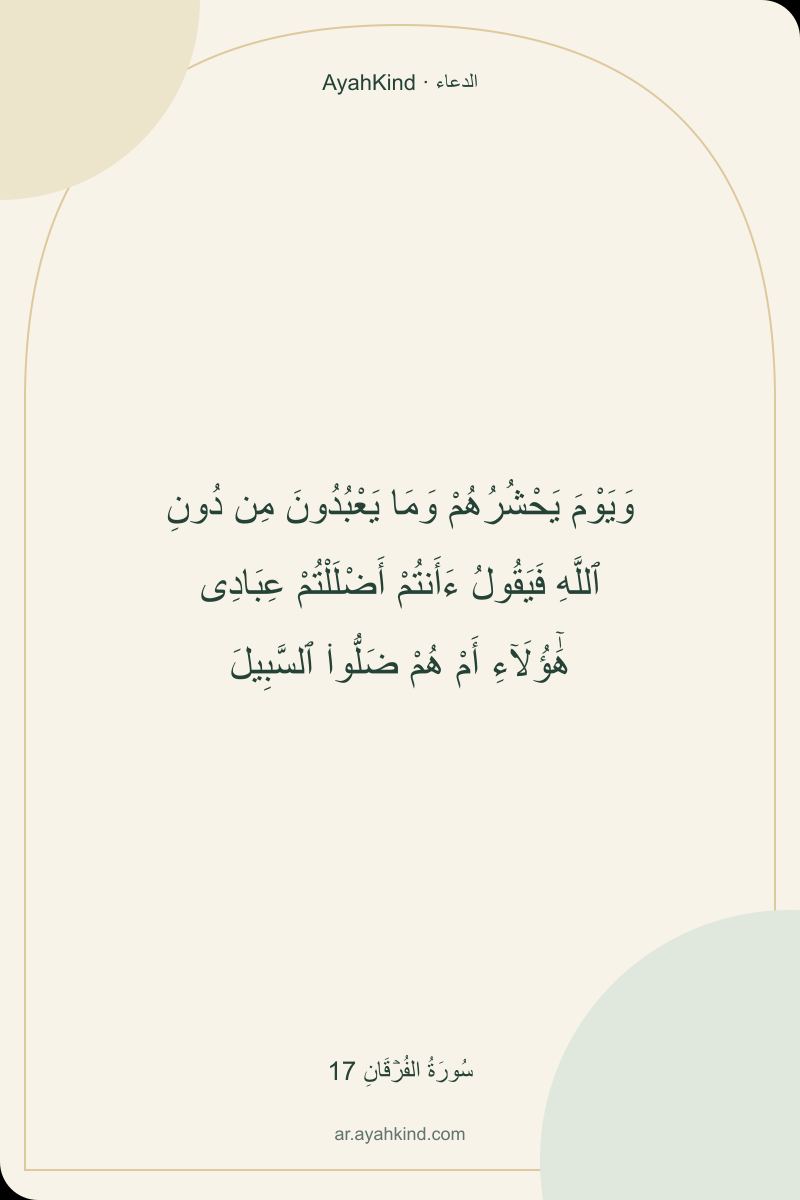 AyahKind · الدعاء
وَيَوْمَ يَحْشُرُهُمْ وَمَا يَعْبُدُونَ مِن دُونِ
ٱللَّهِ فَيَقُولُ ءَأَنتُمْ أَضْلَلْتُمْ عِبَادِى
هَٰٓؤُلَآءِ أَمْ هُمْ ضَلُّوا۟ ٱلسَّبِيلَ
سُورَةُ الفُرۡقَانِ 17
ar.ayahkind.com